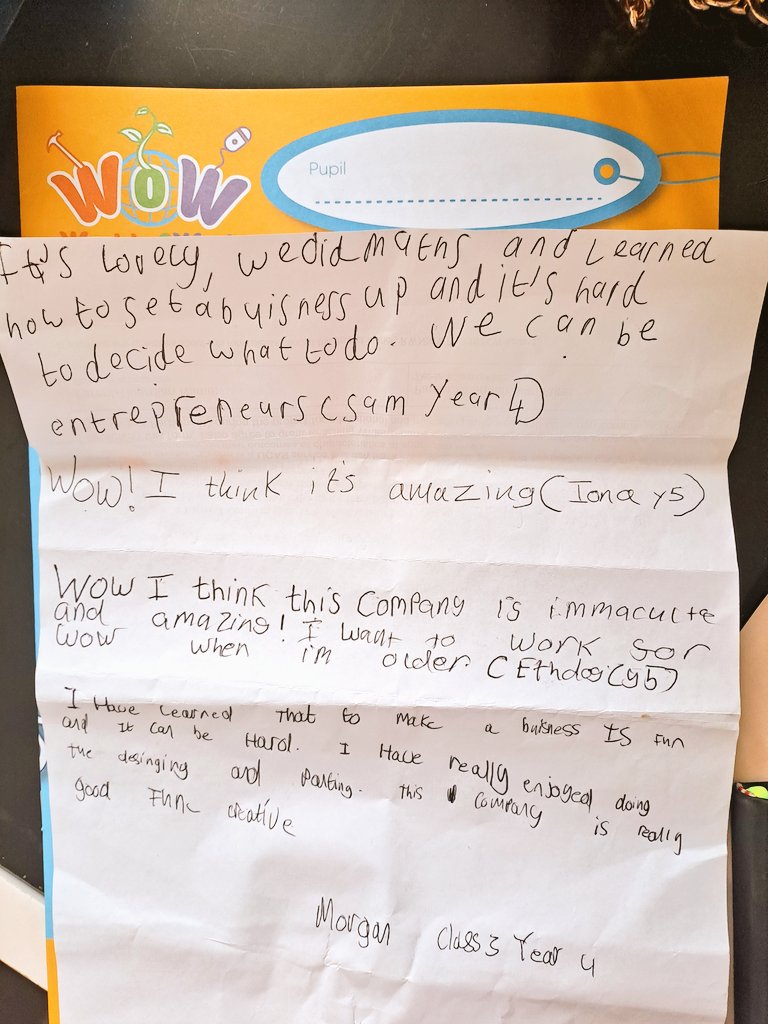 WOW
Pupil
It's Lovely, we did maths and Learned
how to set a buisness up and it's hard
to decide what to do. We can be
entrepreneurs (sam Year 4)
Wow! I think it's amazing (Iona y5)
Wow I think this Company is immaculte
and amazing! I want to work for
wow when i'm older (y5)
I Have Learned That to make a buisness IS Fun
and It can be Hard. I Have really enjoyed doing
the desinging and Painting. This Company is really
good Fun creative
Morgan Class 3 Year 4